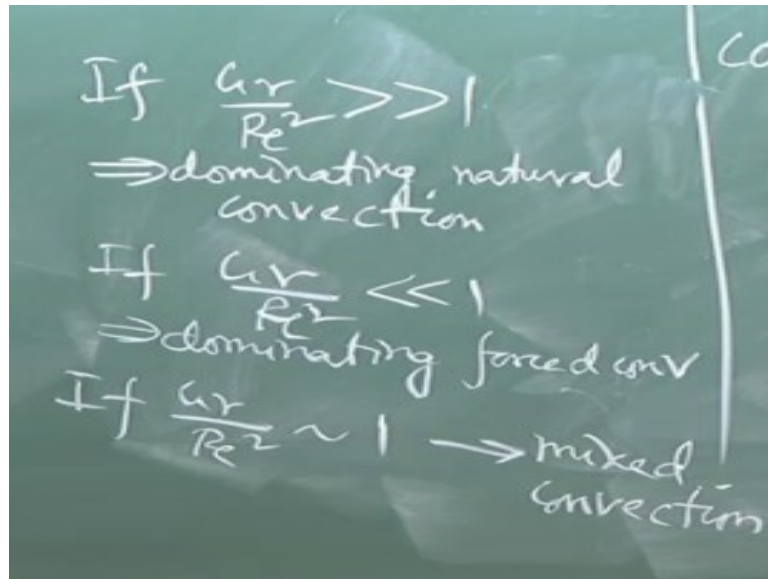 If Gr/Re² >> 1
⇒ dominating natural
convection
If Gr/Re² << 1
⇒ dominating forced conv
If Gr/Re² ~ 1 → mixed
convection